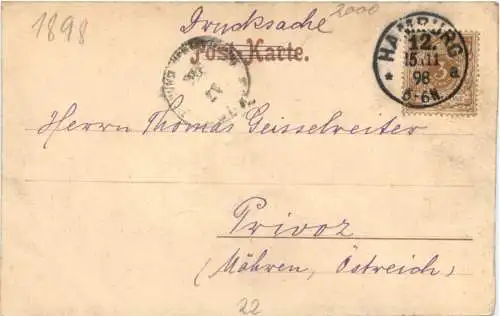 1898
Drucksache
2000
Post-Karte.
HAMBURG
12.
15.11
98
5-6N.
* a
3
Herrn Thomas Geisselreiter
Privoz
(Mähren, Östreich)
22